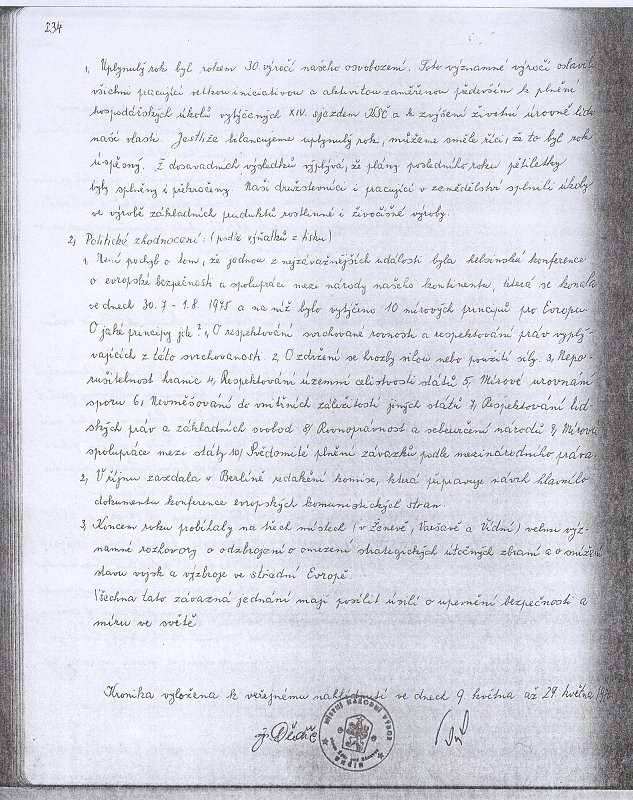 234
1, Uplynulý rok byl rokem 30. výročí našeho osvobození. Toto významné výročí oslavili
všichni pracující velkou iniciativou a aktivitou zaměřenou především k plnění
hospodářských úkolů vytýčených XIV. sjezdem KSČ a k zvýšení životní úrovně lidu
naší vlasti. Jestliže bilancujeme uplynulý rok, můžeme směle říci, že to byl rok
úspěšný. Z dosavadních výsledků vyplývá, že plány posledního roku pětiletky
byly splněny i překročeny. Naši družstevníci i pracující v zemědělství splnili úkoly
ve výrobě základních produktů rostlinné i živočišné výroby.
2, Politické zhodnocení: (podle výňatků z tisku)
1, Není pochyb o tom, že jednou z nejzávažnějších událostí byla helsinská konference
o evropské bezpečnosti a spolupráci mezi národy našeho kontinentu, která se konala
ve dnech 30.7 - 1.8. 1975 a na níž bylo vytýčeno 10 mírových principů pro Evropu.
O jaké principy jde? 1, O respektování svrchované rovnosti a respektování práv vyplý-
vajících z této svrchovanosti. 2, O zdržení se hrozby silou nebo použití síly. 3, Nepo-
rušitelnost hranic 4, Respektování územní celistvosti států 5, Mírové urovnání
sporů 6, Nevměšování do vnitřních záležitostí jiných států 7, Respektování lid-
ských práv a základních svobod 8, Rovnoprávnost a sebeurčení národů 9, Mírová
spolupráce mezi státy 10, Svědomité plnění závazků podle mezinárodního práva
2, V říjnu zasedala v Berlíně redakční komise, která připravuje návrh hlavního
dokumentu konference evropských komunistických stran.
3, Koncem roku probíhaly na třech místech (v Ženevě, Varšavě a Vídni) velmi výz-
namné rozhovory o odzbrojení o omezení strategických útočných zbraní a o snížení
stavu vojsk a výzbroje ve střední Evropě.
Všechna tato závazná jednání mají posílit úsilí o upevnění bezpečnosti a
míru ve světě.
Kronika vyložena k veřejnému nahlédnutí ve dnech 9. května až 29. května
MÍSTNÍ NÁRODNÍ VÝBOR